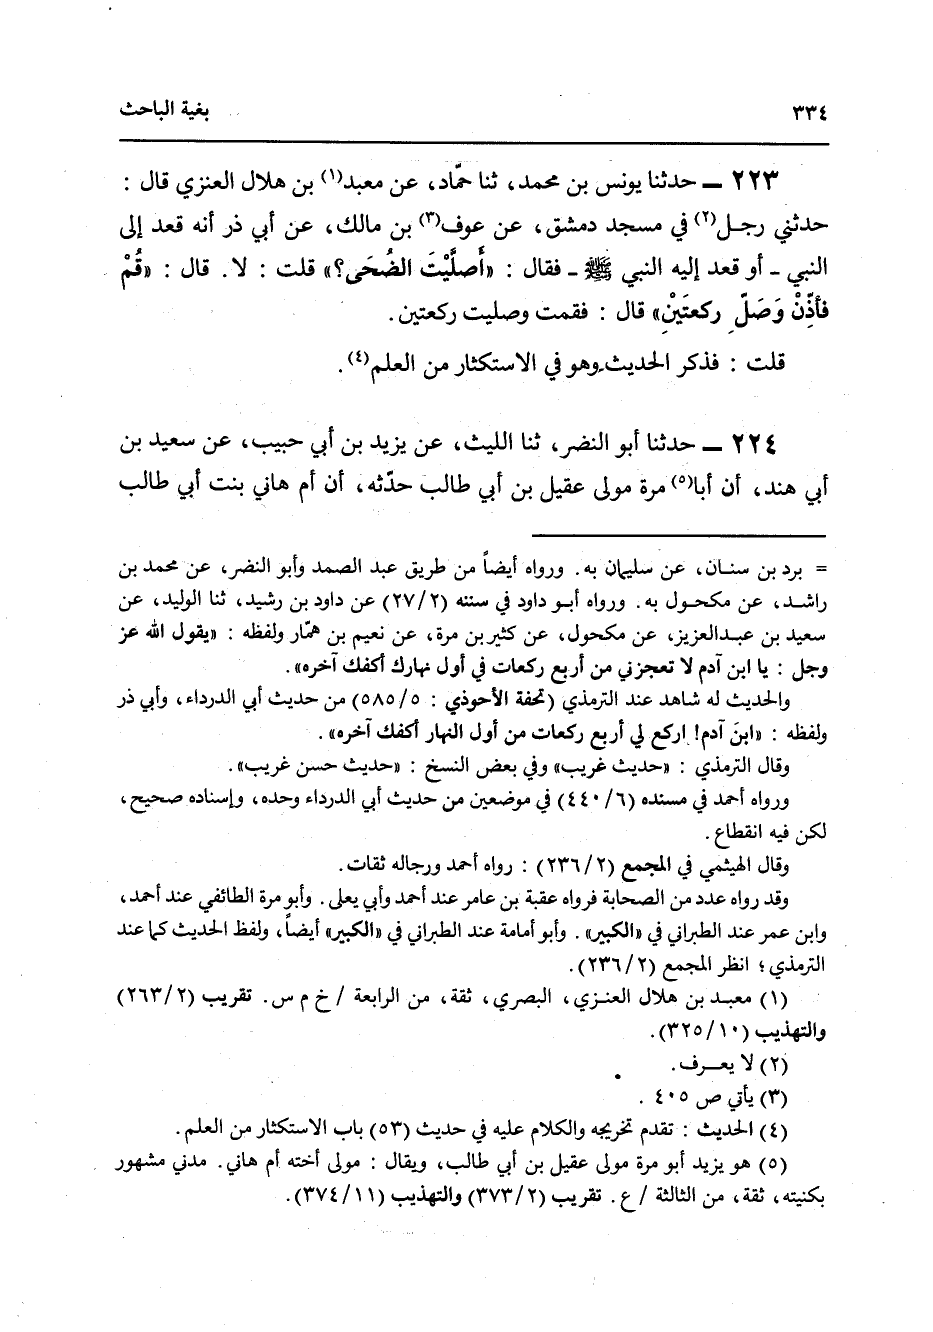 ٣٣٤ بغية الباحث
٢٢٣ ــ حدثنا يونس بن محمد، ثنا حمّاد، عن معبد(١) بن هلال العنزي قال :
حدثني رجـل(٢) في مسجد دمشق، عن عوف(٣) بن مالك، عن أبي ذر أنه قعد إلى
النبي ـ أو قعد إليه النبي ﷺ ـ فقال : «أَصلَّيْتَ الضُحَى؟» قلت : لا. قال : «قُمْ
فأذِّنْ وَصَلِّ ركعتَيْنِ» قال : فقمت وصليت ركعتين.
قلت : فذكر الحديث وهو في الاستكثار من العلم(٤).
٢٢٤ ــ حدثنا أبو النضر، ثنا الليث، عن يزيد بن أبي حبيب، عن سعيد بن
أبي هند، أن أبا(٥) مرة مولى عقيل بن أبي طالب حدّثه، أن أم هاني بنت أبي طالب
= برد بن سنـان، عن سليمان به. ورواه أيضاً من طريق عبد الصمد وأبو النضر، عن محمد بن
راشـد، عن مكحـول به. ورواه أبـو داود في سننه (٢٧/٢) عن داود بن رشيد، ثنا الوليد، عن
سعيد بن عبـدالعزيز، عن مكحول، عن كثير بن مرة، عن نعيم بن همّار ولفظه : «يقول الله عز
وجل : يا ابن آدم لا تعجزني من أربع ركعات في أول نهارك أكفك آخره».
والحديث له شاهد عند الترمذي (تحفة الأحوذي : ٥٨٥/٥) من حديث أبي الدرداء، وأبي ذر
ولفظه : «ابنَ آدم! اركع لي أربع ركعات من أول النهار أكفك آخره».
وقال الترمذي : «حديث غريب» وفي بعض النسخ : «حديث حسن غريب».
ورواه أحمد في مسنده (٤٤٠/٦) في موضعين من حديث أبي الدرداء وحده، وإسناده صحيح،
لكن فيه انقطاع.
وقال الهيثمي في المجمع (٢٣٦/٢) : رواه أحمد ورجاله ثقات.
وقد رواه عدد من الصحابة فرواه عقبة بن عامر عند أحمد وأبي يعلى. وأبو مرة الطائفي عند أحمد،
وابن عمر عند الطبراني في «الكبير». وأبو أمامة عند الطبراني في «الكبير» أيضاً، ولفظ الحديث كما عند
الترمذي؛ انظر المجمع (٢٣٦/٢).
(١) معبـد بن هلال العنـزي، البصري، ثقة، من الرابعة / خ م س. تقريب (٢٦٣/٢)
والتهذيب (٣٢٥/١٠).
(٢) لا يعـرف.
(٣) يأتي ص ٤٠٥ .
(٤) الحديث : تقدم تخريجه والكلام عليه في حديث (٥٣) باب الاستكثار من العلم.
(٥) هو يزيد أبو مرة مولى عقيل بن أبي طالب، ويقال : مولى أخته أم هاني. مدني مشهور
بكنيته، ثقة، من الثالثة / ع. تقريب (٣٧٣/٢) والتهذيب (٣٧٤/١١).